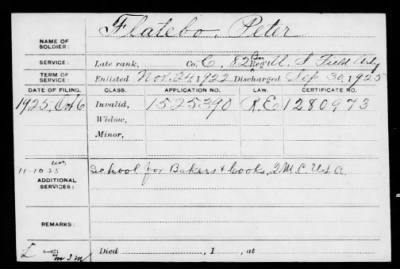 NAME OF SOLDIER: Flatebo, Peter
SERVICE: Late rank, Co. C, 82 Field Arty
TERM OF SERVICE: Enlisted Nov. 24, 1922, Discharged Sep 30, 1925
DATE OF FILING. CLASS. APPLICATION NO. LAW. CERTIFICATE NO.
1925, Oct 6 Invalid, 1525390 R.E. 1280973
Widow,
Minor,
11-10-25 School for Bakers & Cooks, Q.M.C. U.S.A.
ADDITIONAL SERVICES:
REMARKS:
Died , 1 , at